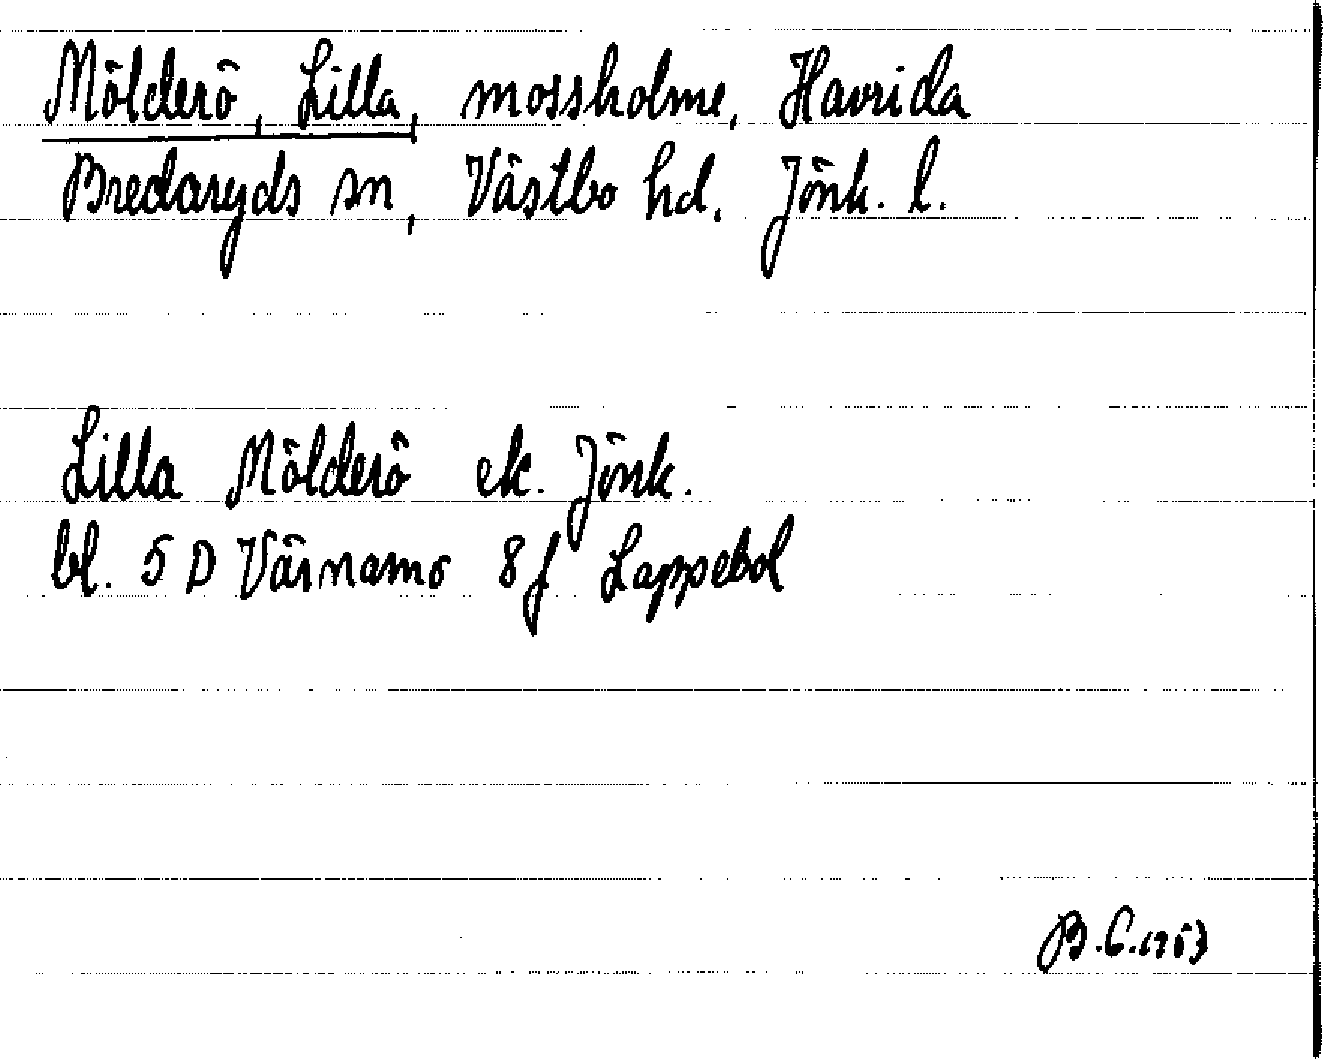 Mölderö, Lilla, mossholme, Havrida
Bredaryds sn, Västbo hd. Jönk. l.
Lilla Mölderö ek. Jönk.
bl. 5 D Värnamo 8f Lappebol
B.C.1953